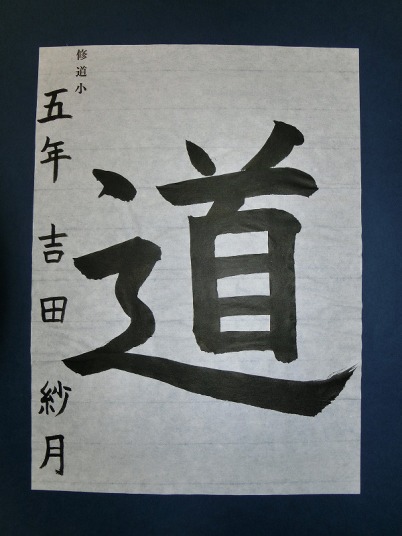 道
修道小
五年 吉田 紗月